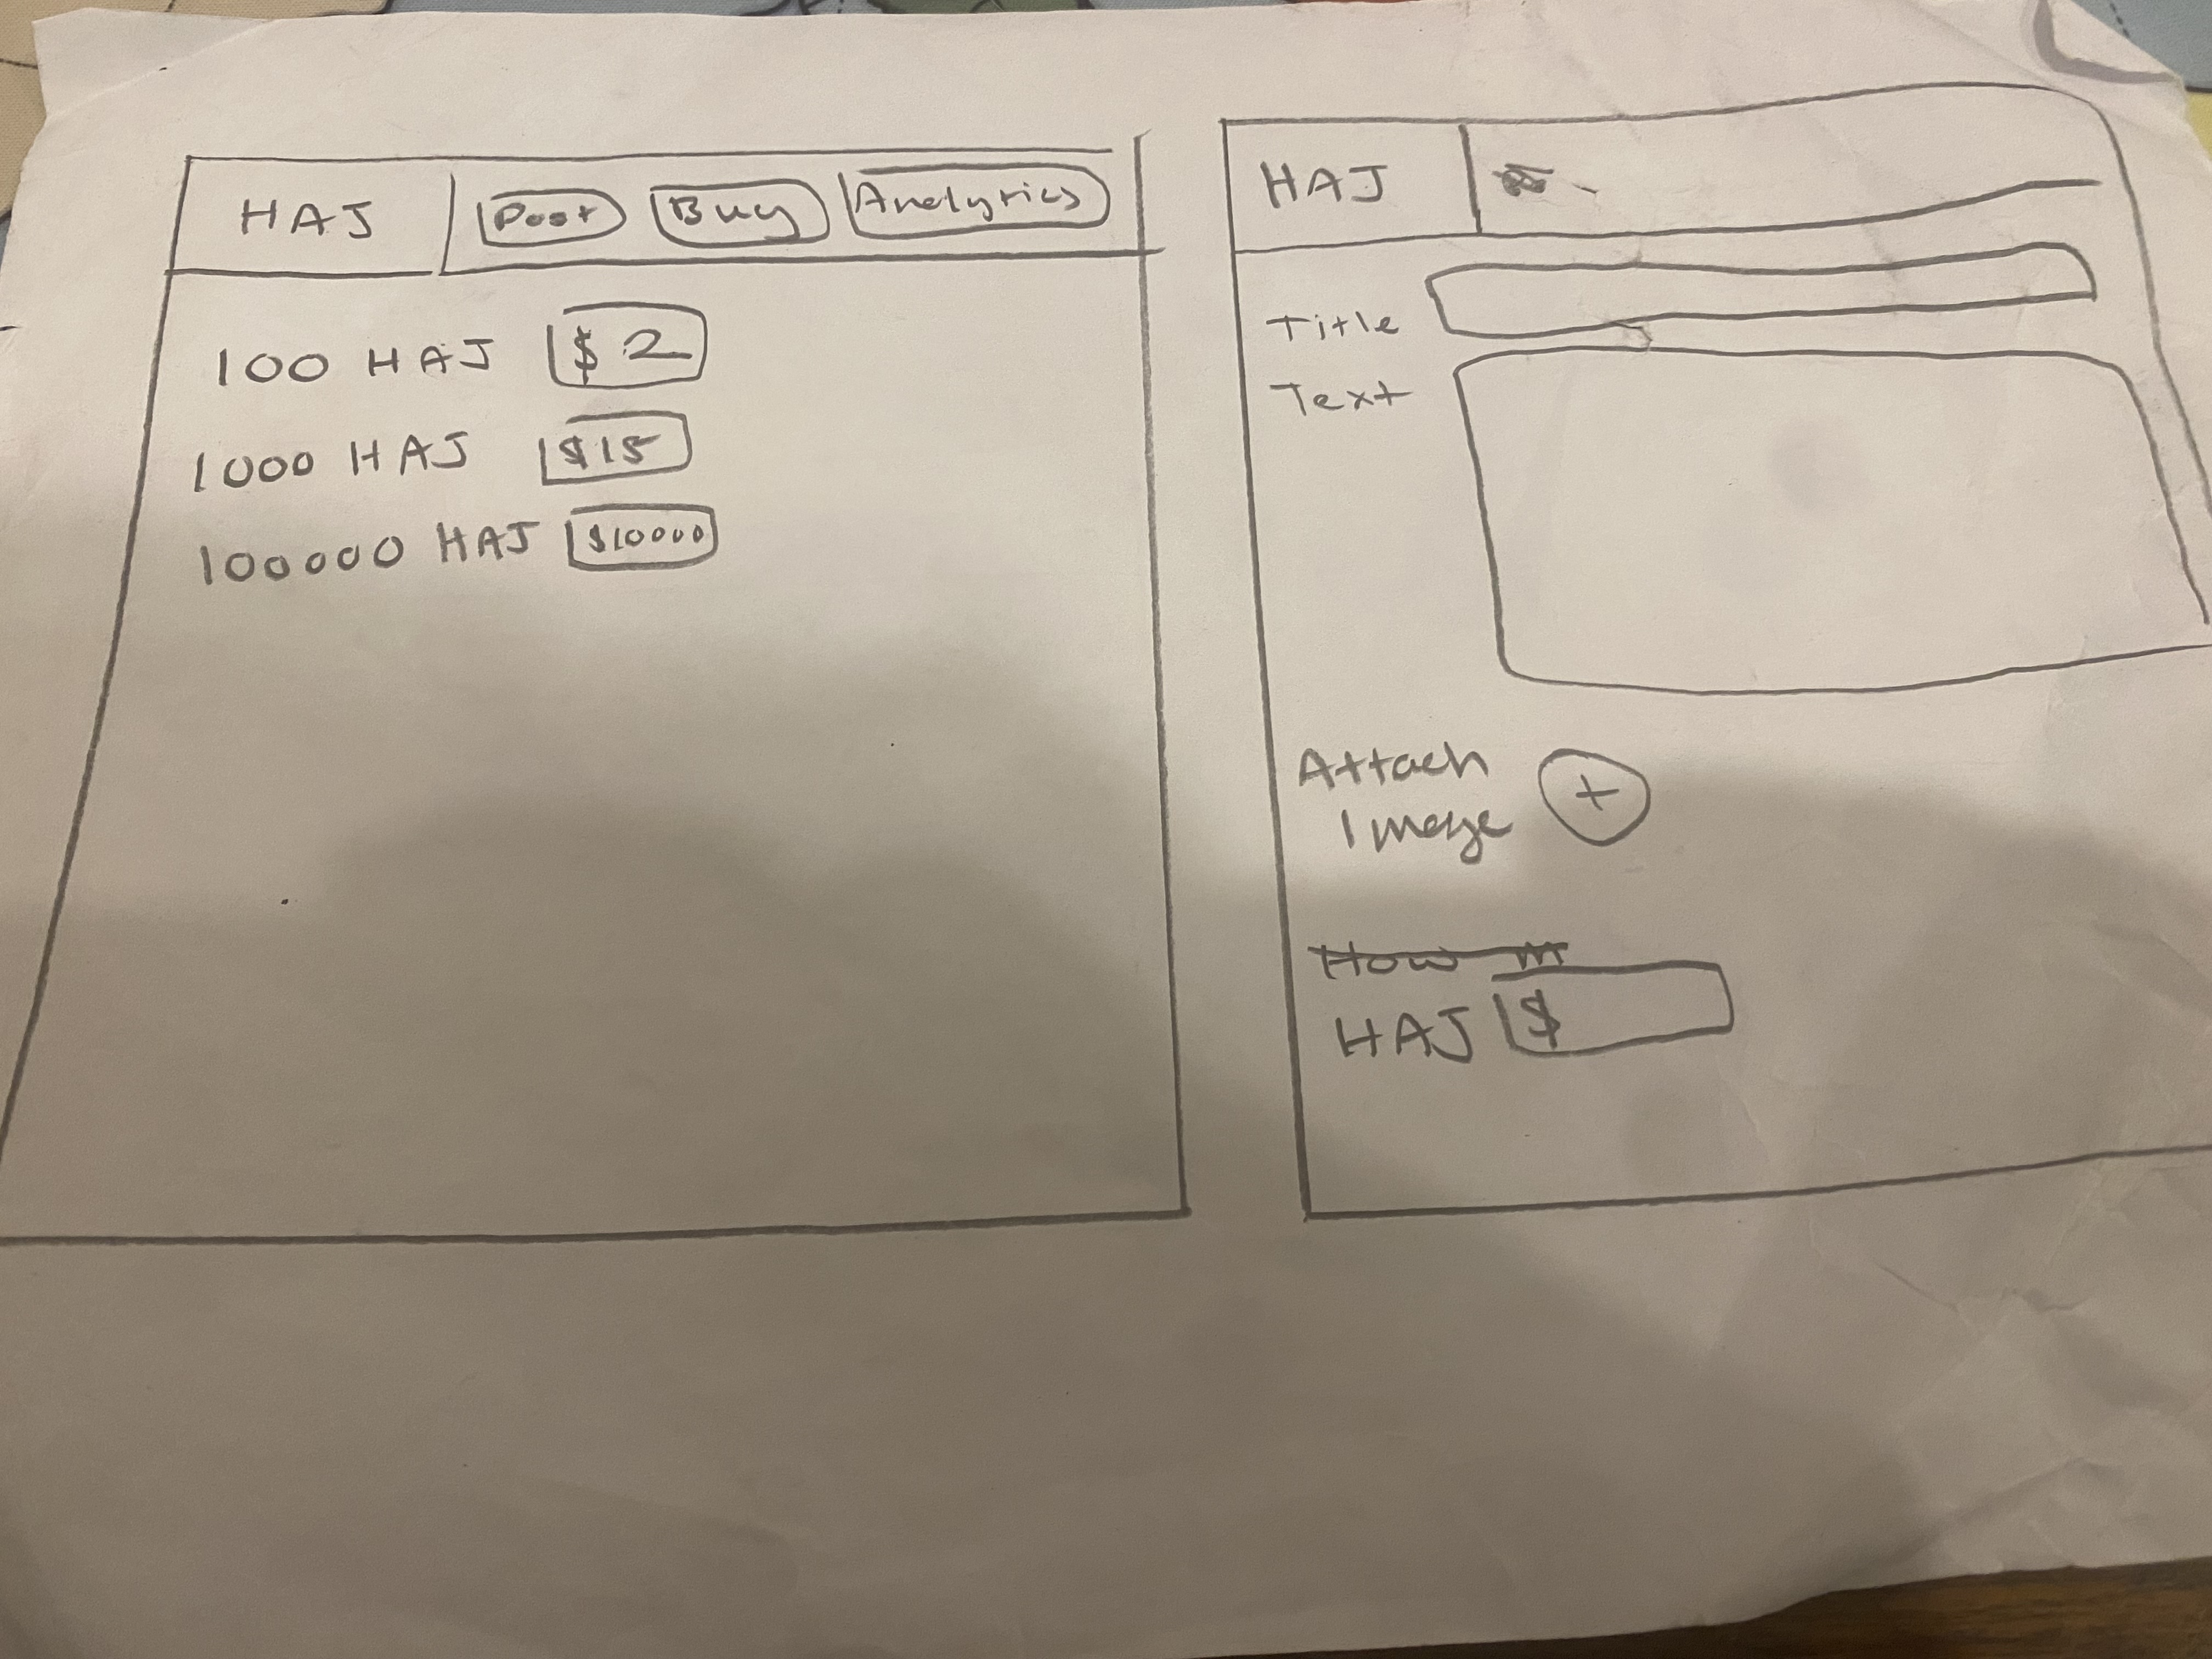 HAJ Post Buy Analytics
100 HAJ $2
1000 HAJ $15
100000 HAJ $10000
HAJ
Title
Text
Attach
Image +
How m
HAJ $